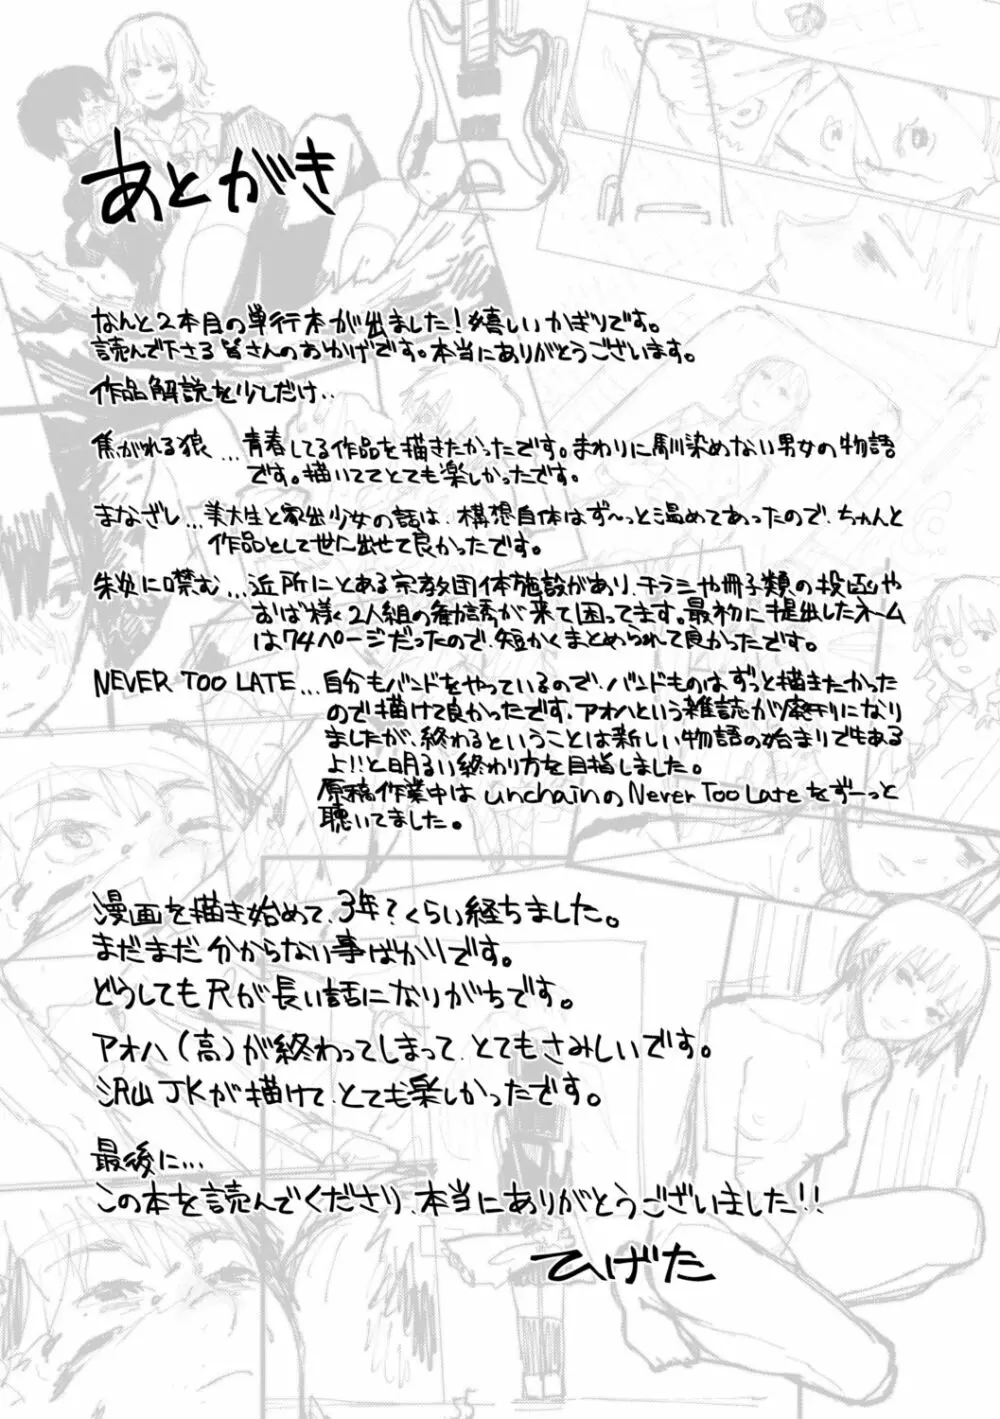 あとがき
なんと2本目の単行本が出ました!嬉しいかぎりです。
読んで下さる皆さんのおかげです。本当にありがとうございます。
作品解説を少しだけ..
焦がれる狼...青春してる作品を描きたかったです。まわりに馴染めない男女の物語
です。描いててとても楽しかったです。
まなざし...美大生と家出少女の話は、構想自体はず〜っと温めてあったので、ちゃんと
作品として世に出せて良かったです。
朱炎に噤む...近所にとある宗教団体施設があり、チラシや冊子類の投函や
おば様く2人組の勧誘が来て困ってます。最初に提出したネーム
は74ページだったので、短かくまとめられて良かったです。
NEVER TOO LATE...自分もバンドをやっているので、バンドものはずっと描きたかった
ので描けて良かったです。アオハという雑誌が廃刊になり
ましたが、終わるということは新しい物語の始まりでもある
よ!!と明るい終わり方を目指しました。
原稿作業中はunchainのNever Too Lateをずーっと
聴いてました。
漫画を描き始めて、3年?くらい経ちました。
まだまだ分からない事ばかりです。
どうしても尺が長い話になりがちです。
アオハ(高)が終わってしまって、とてもさみしいです。
沢山JKが描けて、とても楽しかったです。
最後に...
この本を読んでくださり、本当にありがとうございました!!
ひげた